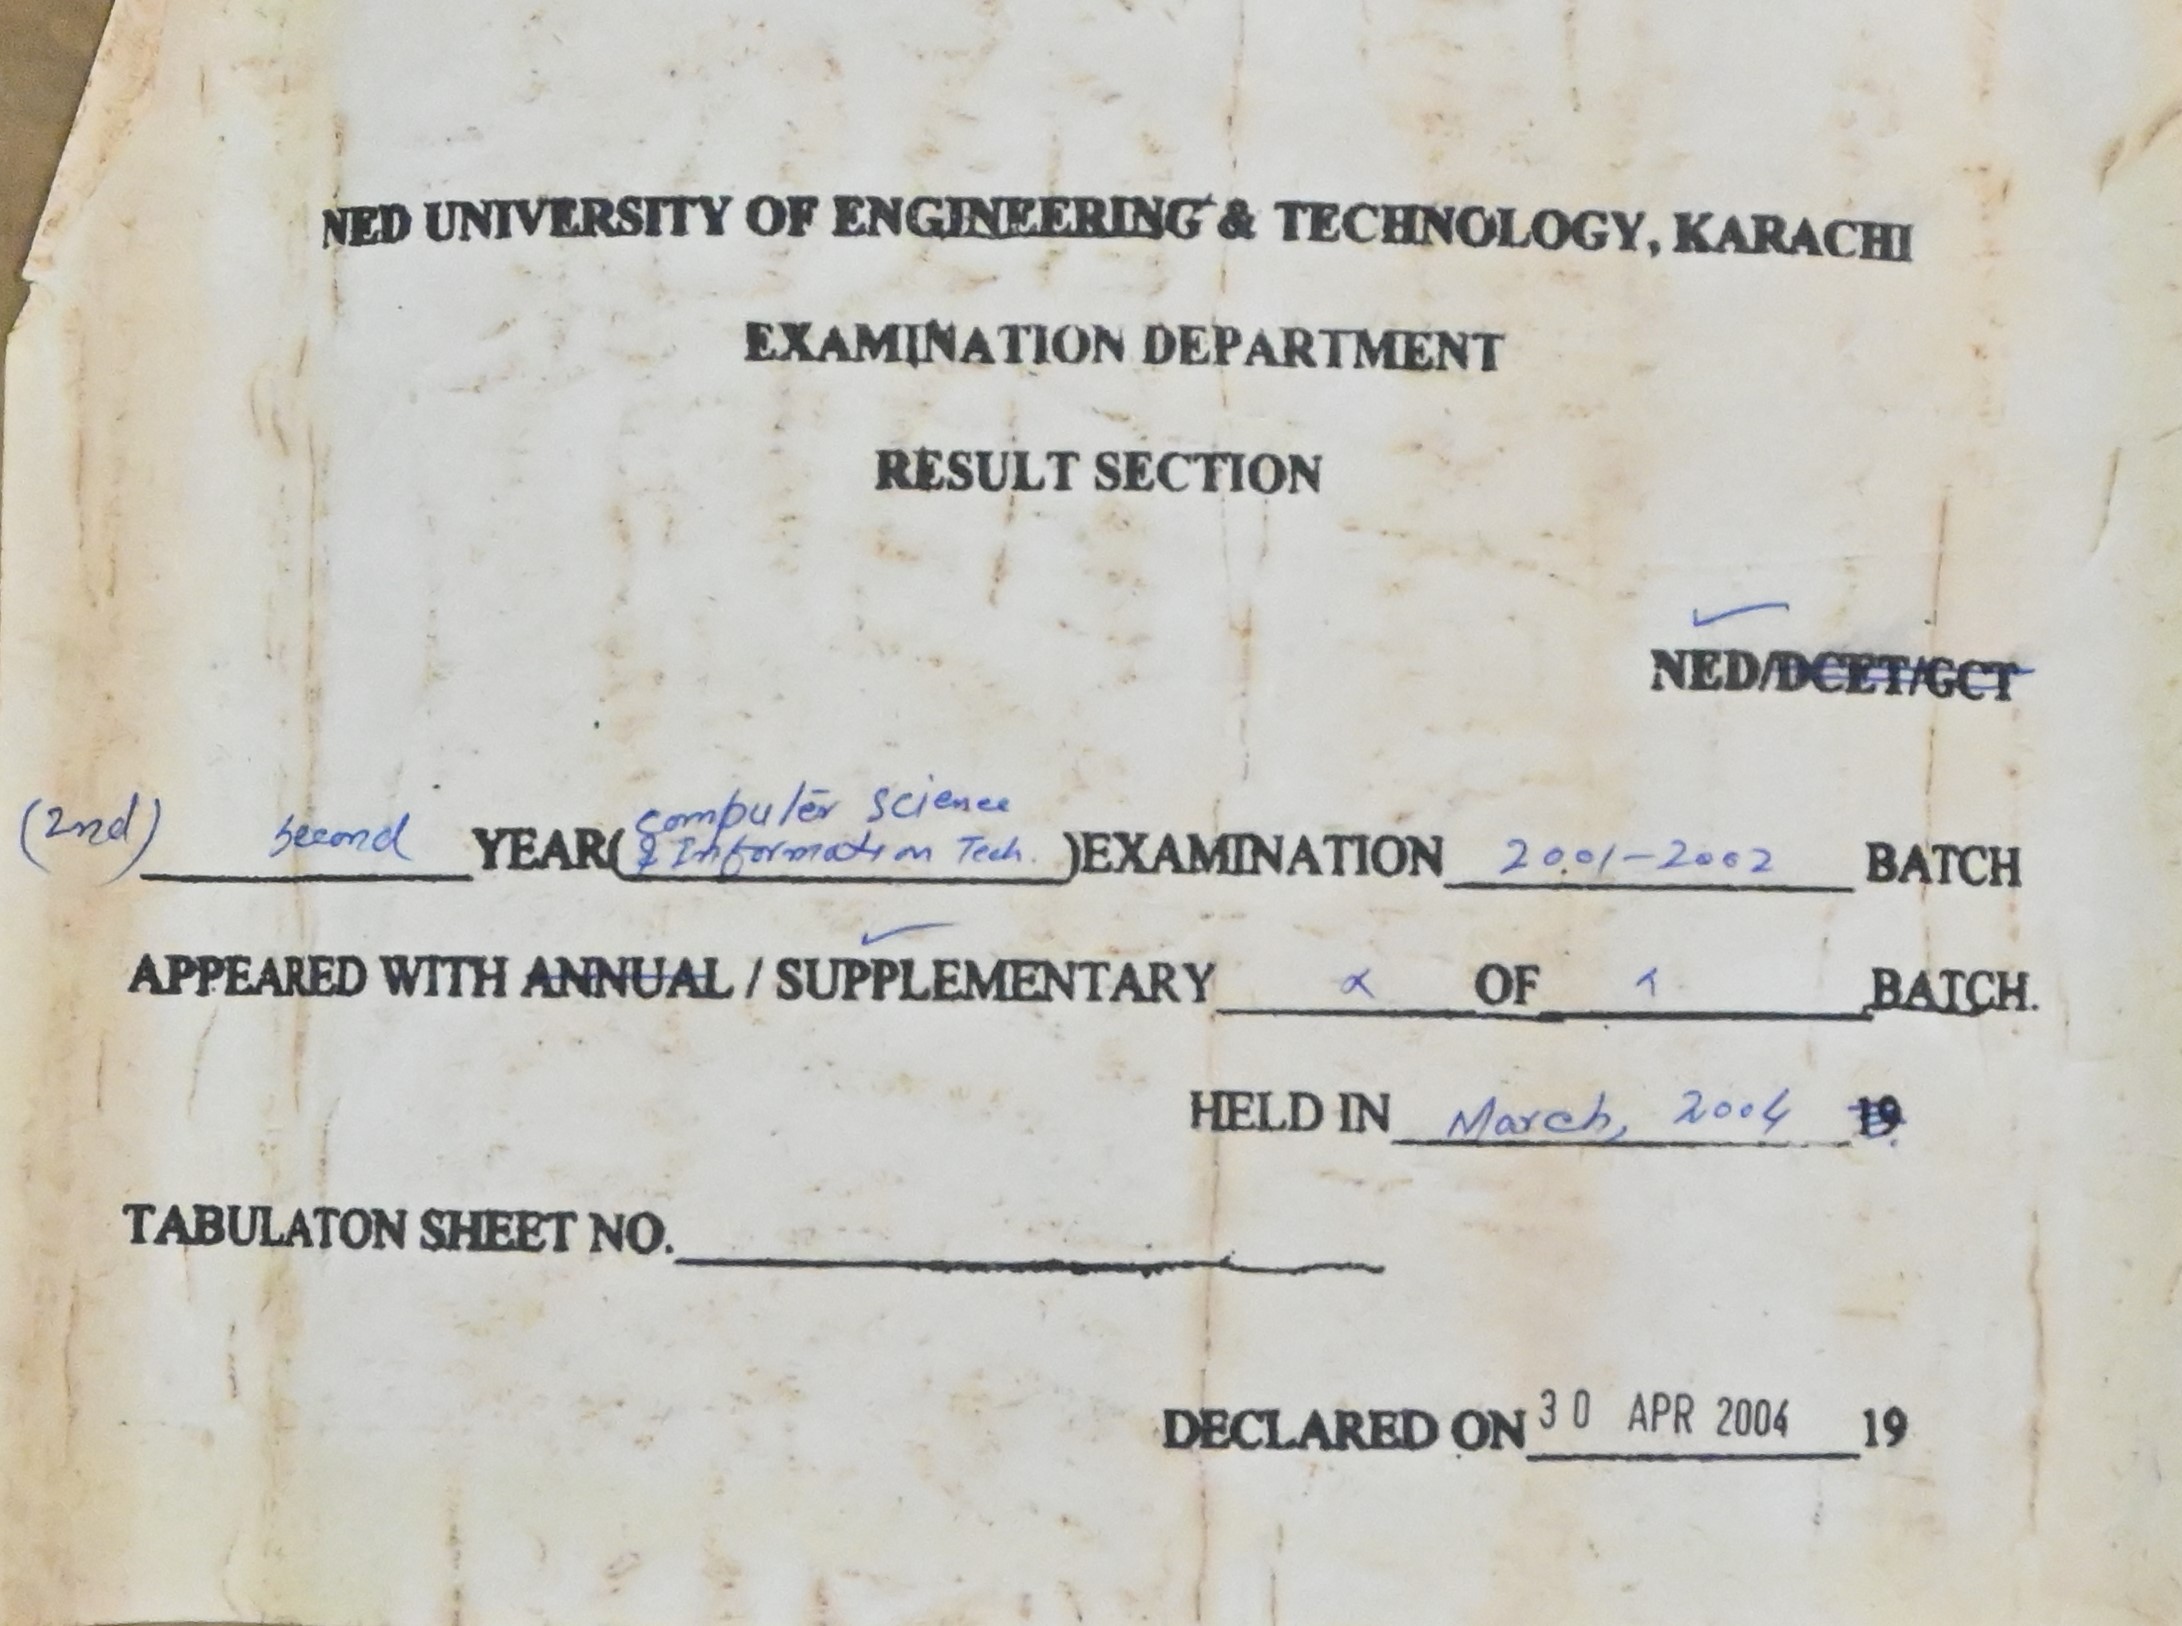 NED UNIVERSITY OF ENGINEERING & TECHNOLOGY, KARACHI
EXAMINATION DEPARTMENT
RESULT SECTION
NED/DCET/GCT
(2nd) Second YEAR(Computer Science
& Information Tech.)EXAMINATION 2001-2002 BATCH
APPEARED WITH ANNUAL / SUPPLEMENTARY x OF x BATCH.
HELD IN March, 2004 19
TABULATON SHEET NO.
DECLARED ON 30 APR 2004 19